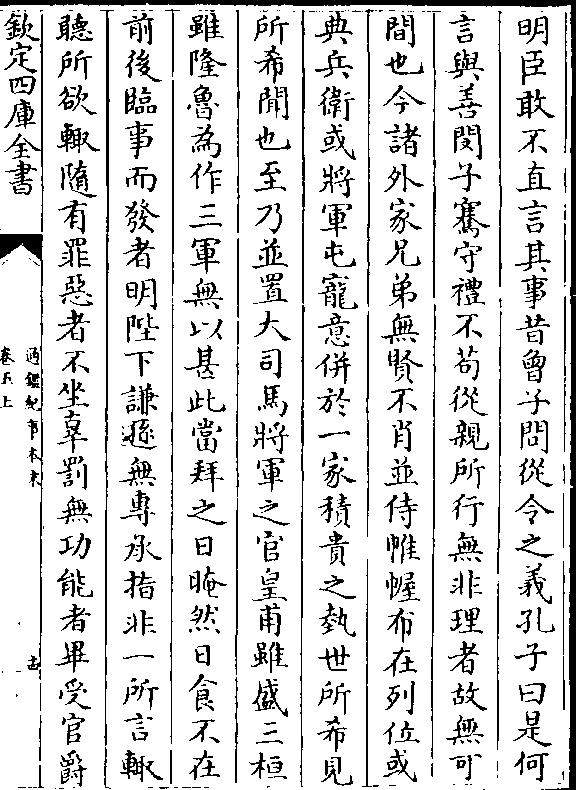 明臣敢不直言其事昔曾子問從令之義孔子曰是何
言與善閔子騫守禮不苟從親所行無非理者故無可
間也今諸外家兄弟無賢不肖並侍帷幄布在列位或
典兵衛或將軍屯寵意併於一家積貴之埶世所希見
所希聞也至乃並置大司馬將軍之官皇甫雖盛三桓
雖隆魯為作三軍無以甚此當拜之日晻然日食不在
前後臨事而發者明陛下謙遜無專承指非一所言輒
聽所欲輙隨有罪惡者不坐辜罰無功能者畢受官爵
欽定四庫全書
通鑑紀事本末
卷五上